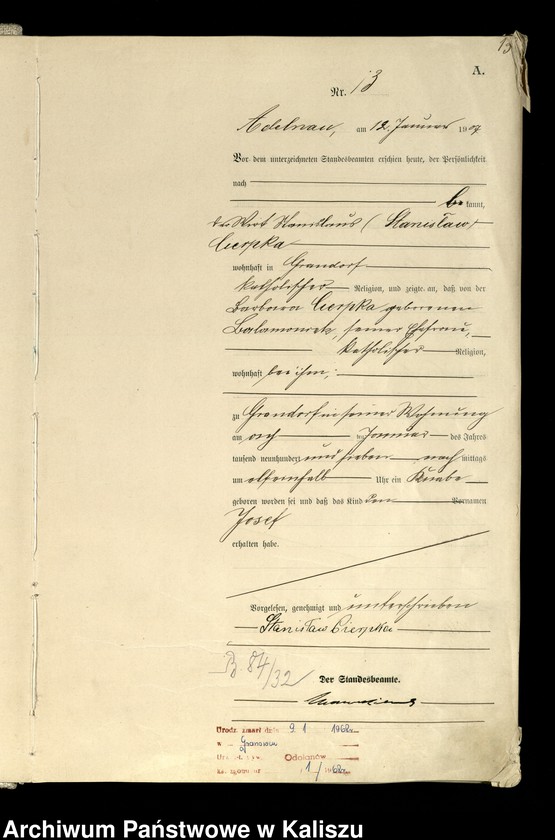 13
A.
Nr. 13
Adelnau, am 12. Januar 1907
Vor dem unterzeichneten Standesbeamten erschien heute, der Persönlichkeit
nach
be kannt,
der Wirt Stanislaus (Stanisław)
Cierpka
wohnhaft in Grandorf
katholischer Religion, und zeigte an, daß von der
Barbara Cierpka geborenen
seiner Ehefrau,
katholischer Religion,
wohnhaft bei ihm,
zu Grandorf in seiner Wohnung
am acht Januar des Jahres
tausend neunhundert und sieben nach mittags
um elfeinhalb Uhr ein Knabe
geboren worden sei und daß das Kind den Vornamen
Josef
erhalten habe.
Vorgelesen, genehmigt und unterschrieben
Stanisław Cierpka
B 84/32
Der Standesbeamte.
Urodz. zmarł dnia 9.1 1968 r.
w Granowiec
Odolanów
1/1968
Archiwum Państwowe w Kaliszu